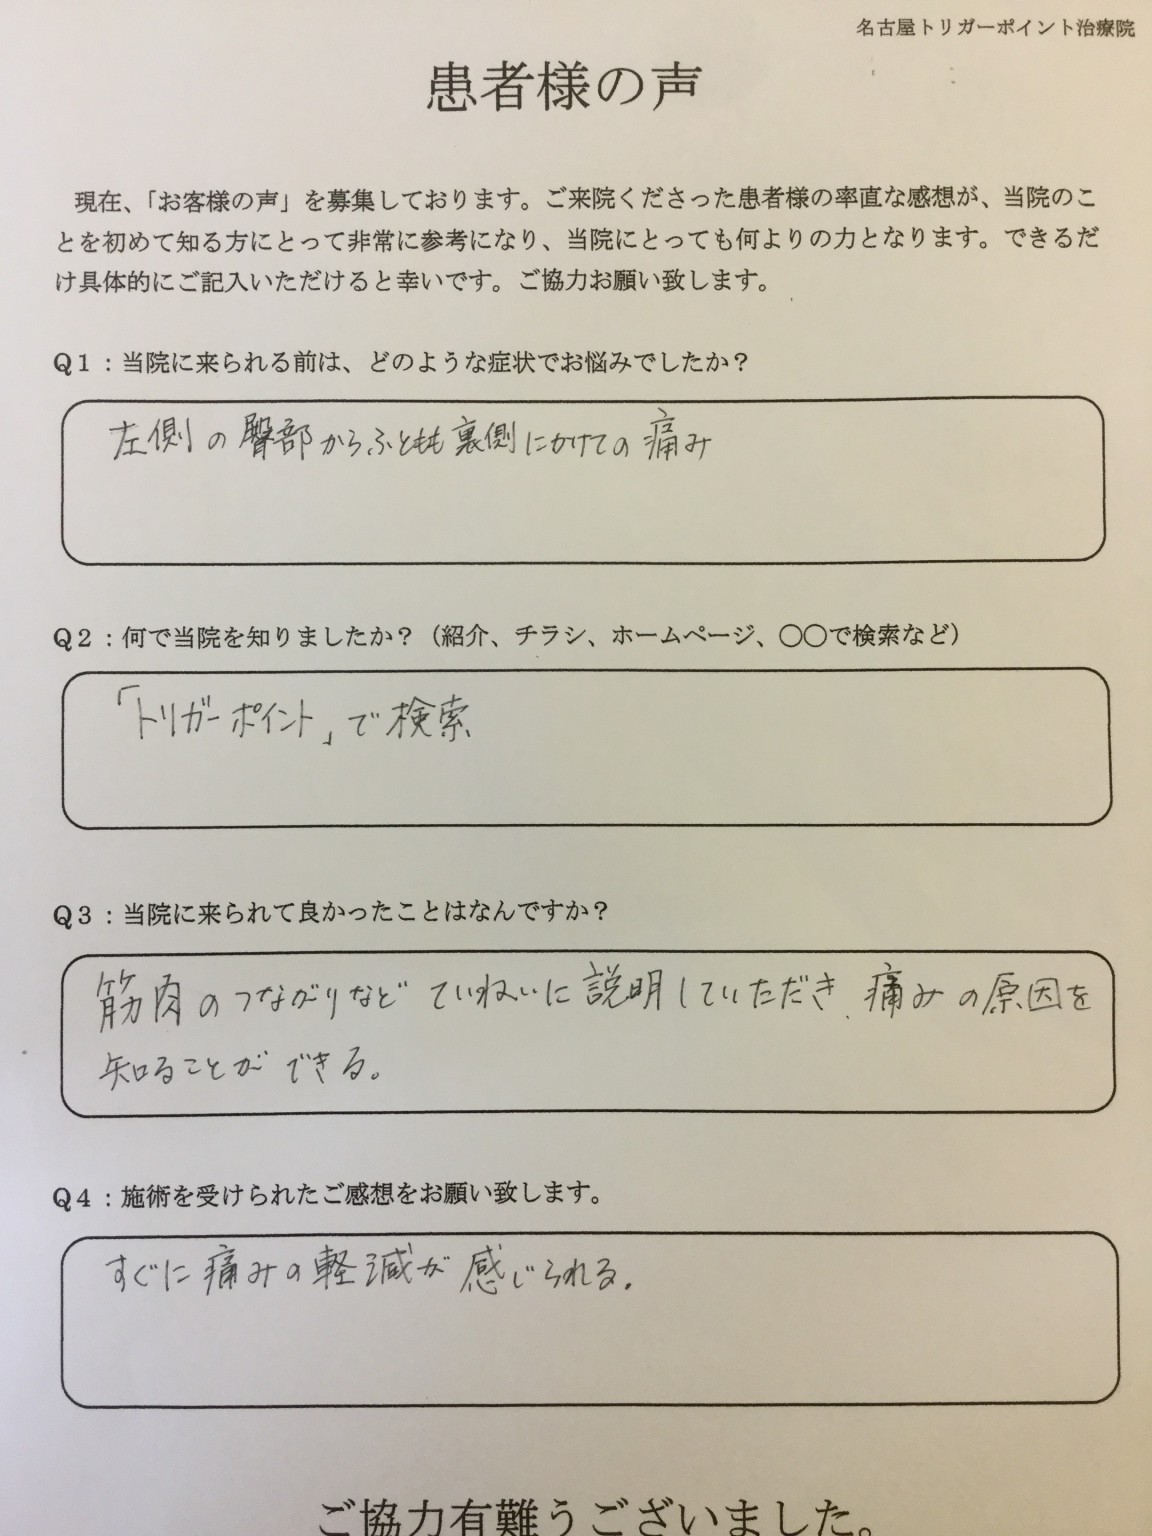 名古屋トリガーポイント治療院
患者様の声
現在、「お客様の声」を募集しております。ご来院くださった患者様の率直な感想が、当院のこ
とを初めて知る方にとって非常に参考になり、当院にとっても何よりの力となります。できるだ
け具体的にご記入いただけると幸いです。ご協力お願い致します。
Q1：当院に来られる前は、どのような症状でお悩みでしたか？
左側の臀部からふともも裏側にかけての痛み
Q2：何で当院を知りましたか？（紹介、チラシ、ホームページ、○○で検索など）
「トリガーポイント」で検索
Q3：当院に来られて良かったことはなんですか？
筋肉のつながりなどていねいに説明していただき、痛みの原因を
知ることができる。
Q4：施術を受けられたご感想をお願い致します。
すぐに痛みの軽減が感じられる。
ご協力有難うございました。